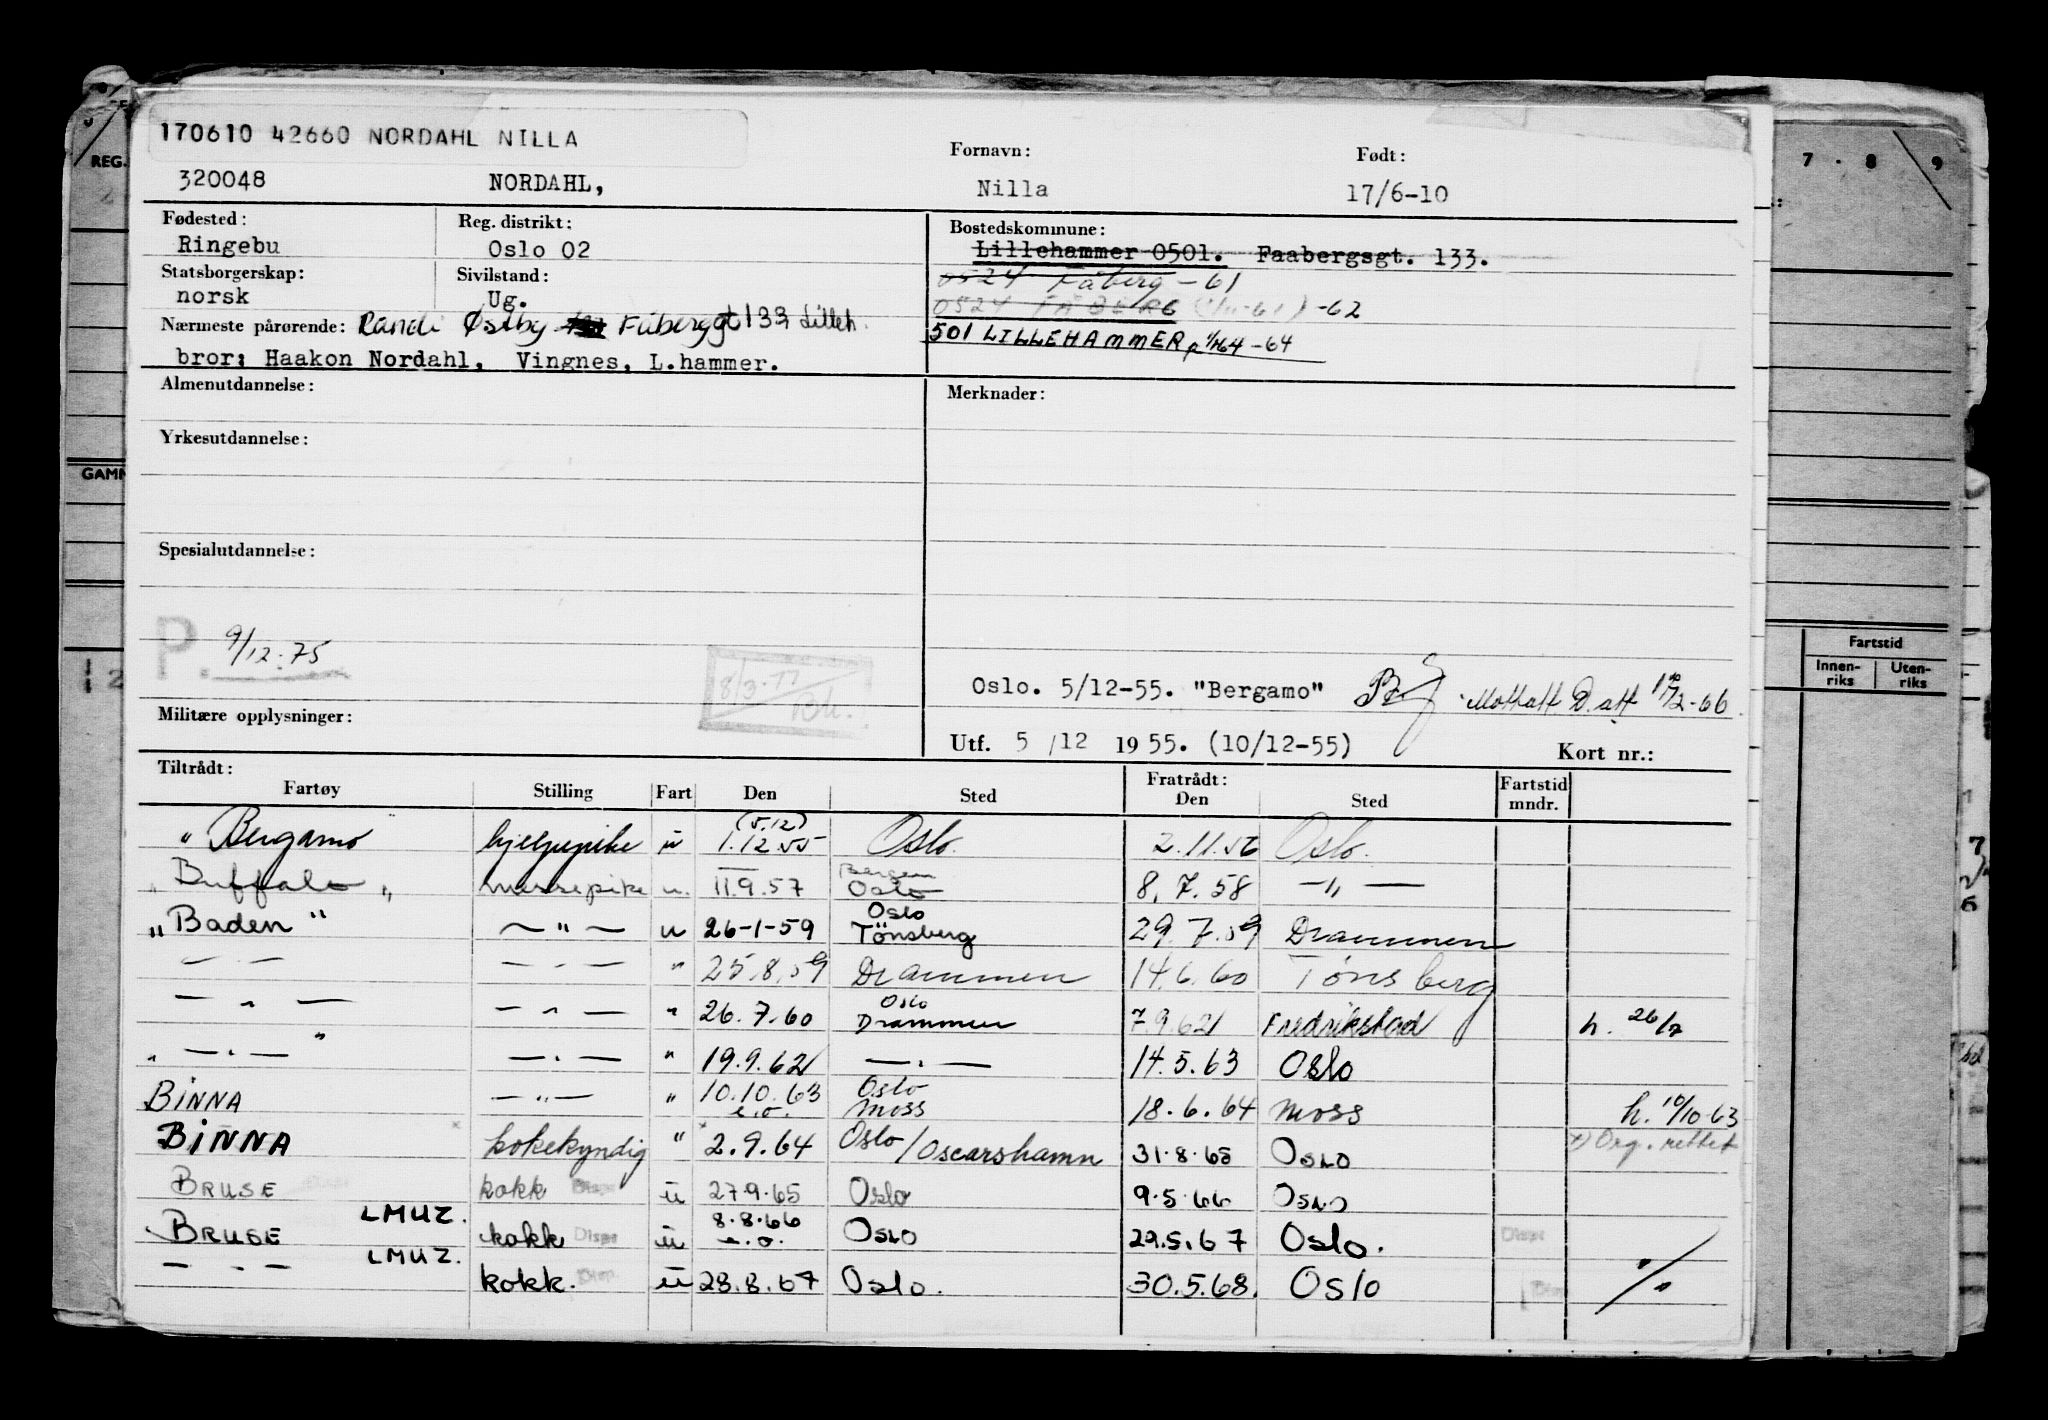 170610 42660 NORDAHL NILLA
Fornavn: Født:
320048 NORDAHL, Nilla 17/6-10
Fødested: Reg. distrikt: Bostedskommune:
Ringebu Oslo 02 Lillehammer 0501. Faabergsgt. 133.
Statsborgerskap: Sivilstand: 0524 Fåberg -61
norsk Ug. 0524 FÅBERG -62
Nærmeste pårørende: Randi Østby Fåberggt 133 Lilleh.
501 LILLEHAMMER -64
bror: Haakon Nordahl, Vingnes, L.hammer.
Almenutdannelse: Merknader:
Yrkesutdannelse:
Spesialutdannelse:
P. 9/12.75
8/3.77
Oslo. 5/12-55. "Bergamo" Mottatt D. att 2-66
Militære opplysninger:
Utf. 5/12 1955. (10/12-55) Kort nr.:
Tiltrådt: Fratrådt: Fartstid
Fartøy Stilling Fart Den Sted Den Sted mndr.
(5.12)
" Bergamo " hjelpepike u 1.12.55 Oslo. 2.11.56 Oslo.
Bergen
" Buffalo " messepike u. 11.9.57 Oslo 8.7.58 — " —
Oslo
"Baden" — " — u 26-1-59 Tönsberg 29.7.59 Drammen
— " — — " — " 25.8.59 Drammen 14.6.60 Tönsberg
Oslo
— " — — " — " 26.7.60 Drammen 7.9.62 Fredrikstad h. 26/7
— " — — " — " 19.9.62 — " — 14.5.63 Oslo
BINNA — " — " 10.10.63 Oslo
e.o. Moss 18.6.64 Moss h. 10/10-63
BINNA kokekyndig " 2.9.64 Oslo/Oscarshamn 31.8.65 OSLO x) Org. rettet
BRUSE kokk ü 27.9.65 Oslo 9.5.66 OSLO
LMUZ. 8.8.66
BRUSE kokk Disp ü e.o. OSLO 29.5.67 Oslo. Disp
LMUZ.
— " — kokk. Disp ü 28.8.67 Oslo. 30.5.68. Oslo "/"
REG.
GAMM
7 . 8 9
Fartstid
Innen-
riks
Uten-
riks